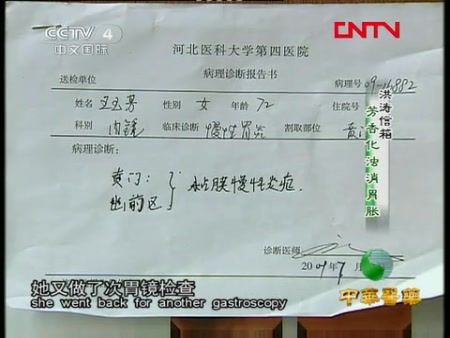 CCTV 4
中文国际
CNTV
河北医科大学第四医院
病理诊断报告书
送检单位
病理号 09-16882
姓名 王玉芳 性别 女 年龄 72 住院号
科别 内镜 临床诊断 慢性胃炎 割取部位
病理诊断:
贲门:
幽前区 } 粘膜慢性炎症.
诊断医师
2009年7月
洪涛信箱
芳香化浊消胃胀
她又做了次胃镜检查
she went back for another gastroscopy
中华医药